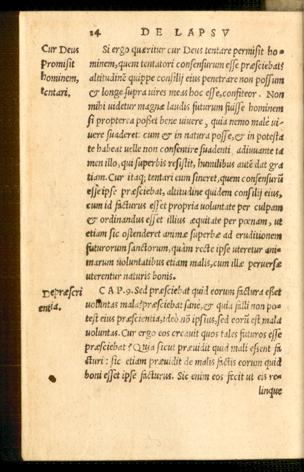 24 DE LAPSV
Cur Deus
promisit
hominem,
tentari.
Si ergo quæritur cur Deus tentare permisit ho-
minem, quem tentatori consensurum esse præsciebat?
altitudinē quippe consilij eius penetrare non possum
& longe supra vires meas hoc esse, confiteor. Non
mihi videtur magnæ laudis futurum fuisse hominem
si propterea posset bene uivere, quia nemo male ui-
vere suaderet: cum & in natura posse, & in potesta
te habeat uelle non consentire suadenti, adiuuante ta
men illo, qui superbis resistit, humilibus autē dat gra
tiam. Cur itaq; tentari eum sineret, quem consensurū
esse ipse præsciebat, altitudine quidem consilij eius,
cum id facturus esset propria uoluntate per culpam
& ordinandus esset illius æquitate per pœnam, ut
etiam sic ostenderet animæ superbæ ad eruditionem
futurorum sanctorum, quàm recte ipse uteretur ani-
marum uoluntatibus etiam malis, cum illæ peruersæ
uterentur naturis bonis.
De præsci
entia.
CAP.9. Sed præsciebat quòd eorum factura esset
uoluntas mala? præsciebat sanè, & quia falli non po-
test eius præscientia, ideò nō ipsius, sed eorū est mala
uoluntas. Cur ergo eos creauit quos tales futuros esse
præsciebat? Quia sicut præuidit quid mali essent fa
cturi: sic etiam præuidit de malis factis eorum quid
boni esset ipse facturus. Sic enim eos fecit ut eis re-
linque